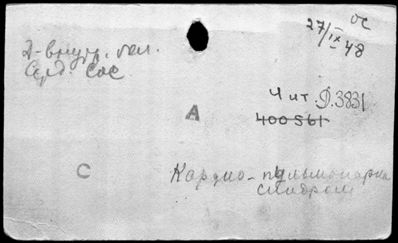 27/IX 48 ОС
2-внутр. бол.
Серд. Сос
Чит. Д.3831
400561
А
С
Кардио-пульмонарн
синдром